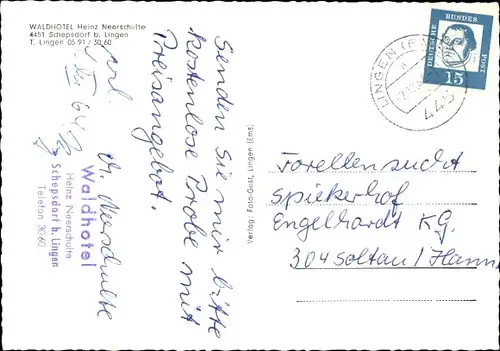 WALDHOTEL Heinz Neerschulte
4451 Schepsdorf b. Lingen
T. Lingen 05 91 / 30 60
Senden Sie mir bitte
kostenlose Probe mit
Preisangebot.
H. Neerschulte
Waldhotel
Heinz Neerschulte
Schepsdorf b. Lingen
Telefon 3060
Verlag: Foto-Gust, Lingen (Ems)
LINGEN (E
445
DEUTSCHE BUNDESPOST
15
Forellenzucht
Spiekerhof
Engelhardt KG.
304 Soltau / Hann